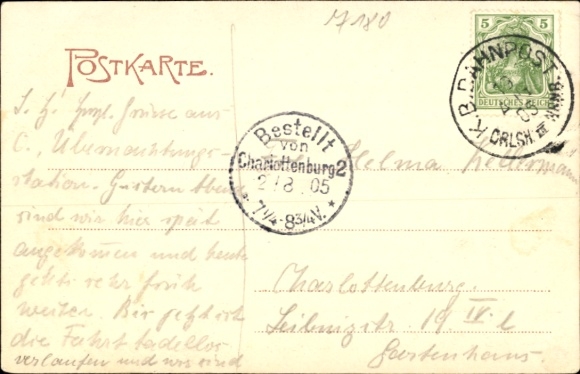 17180
POSTKARTE.
5 5
DEUTSCHES REICH
K.B. BAHNPOST
CRLSH III
Bestellt
von
Charlottenburg 2
2/8.05
7 1/4-8 3/4 V.
herzl. Grüsse aus
C., Übernachtungs-
station. Gestern Abend
sind wir hier spät
angekommen und heute
geht's sehr früh
weiter. Bis jetzt ist
die Fahrt tadellos
verlaufen und wir sind
Helma
Charlottenburg.
Leibnizstr. 19 IV l
Gartenhaus.